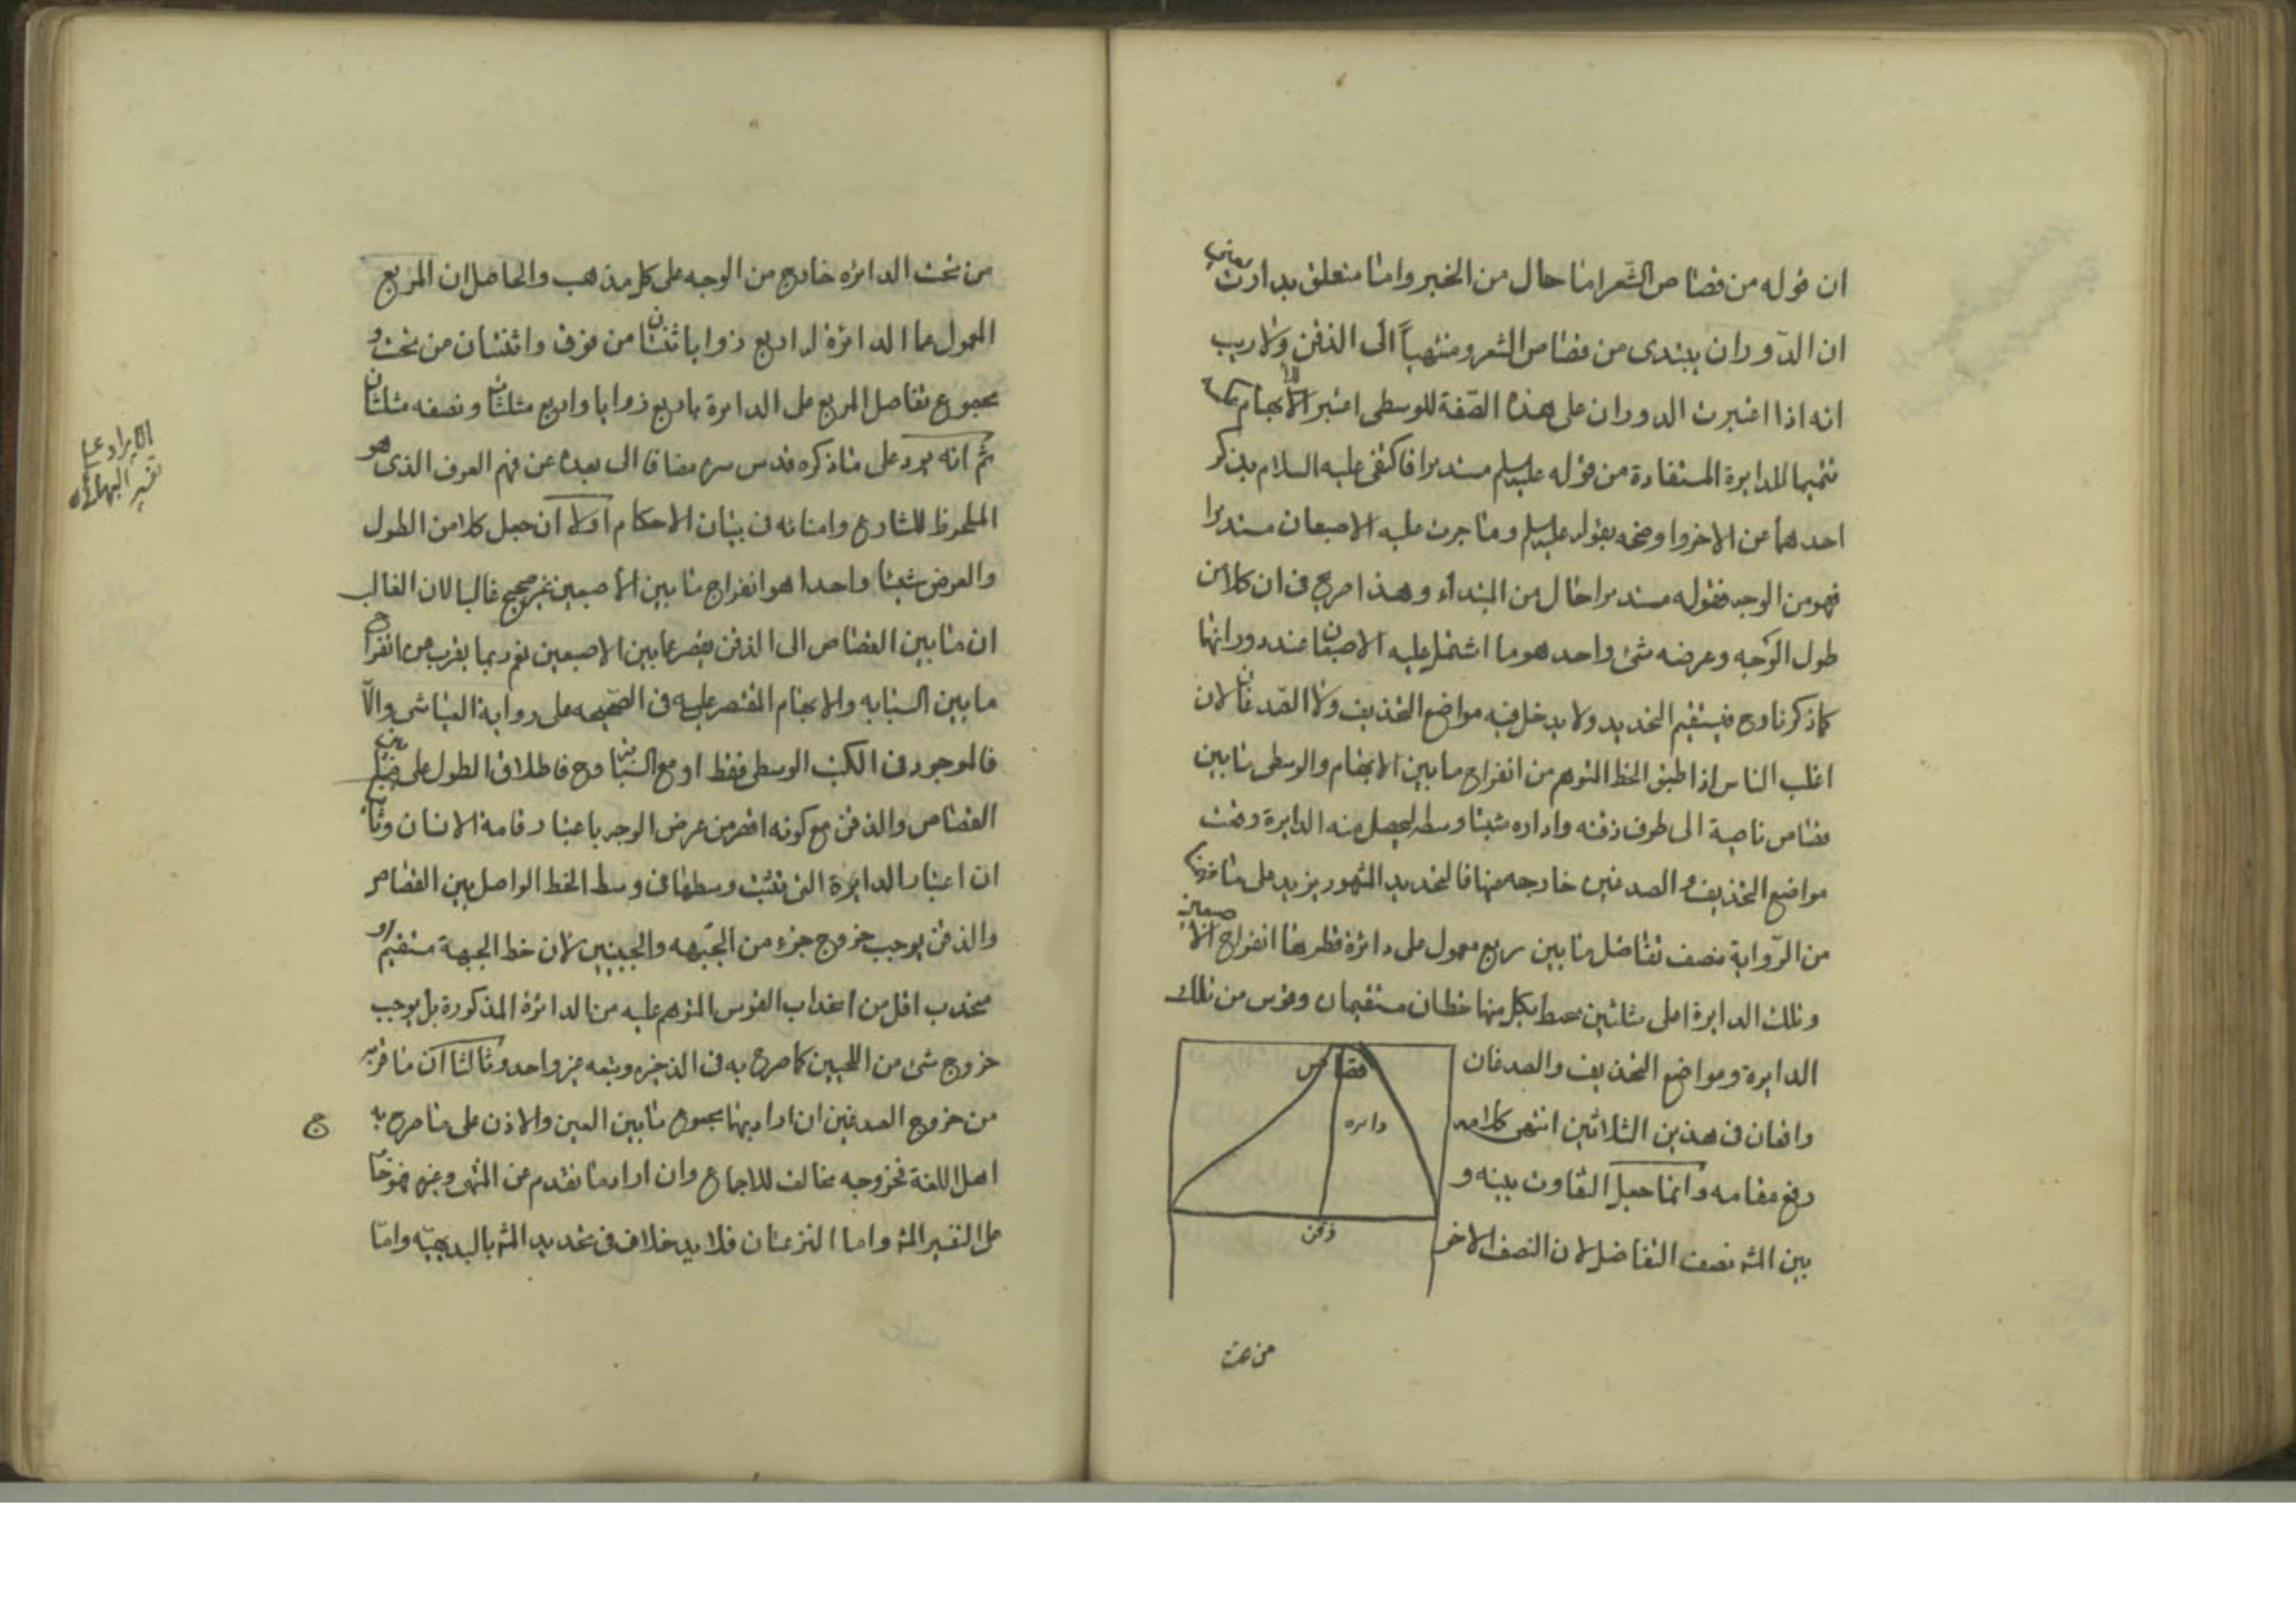 ان قوله من قصاص الشعر اما حال من الخبر واما متعلق بدارت يعني
ان الدّوران يبتدى من قصاص الشعر ومنتهياً الى الذقن ولا ريب
انه اذا اعتبرت الدوران على هذه الصّفة للوسطى اعتبر للابهام عكسه
تتميما للدايرة المستفادة من قوله عليه السلم مستديرا فاكتفى عليه السلام بذكر
احدهما عن الاخر واوضحه بقوله عليه السلم وما جرت عليه الاصبعان مستديرا
فهو من الوجه فقوله مستديرا حال من المبتداء وهذا صريح فى ان كلا من
طول الوَجه وعرضه شئ واحد هو ما اشتمل عليه الاصبعان عند دورانها
كما ذكرنا وح فيستقيم التحديد ولا يدخل فيه مواضع التحذيف ولا الصّدغان لان
اغلب الناس اذا طبق الخط المتوهم من انفراج ما بين الابهام والوسطى ما بين
قصاص ناصية الى طرف ذقنه واداره مثبتا وسطه ليحصل منه الدايرة وقعت
مواضع التحذيف و الصدغين خارجه عنها فالتحديد المشهور يزيد على ما فهمنا
من الرّواية نصف تفاضل ما بين مربع معمول على دائرة قطرها انفراج الاصبعين
وتلك الدايرة اعلى مثلثين يحيط بكل منها خطان مستقيمان وقوس من تلك
الدايرة ومواضع التحذيف والصدغان
واقعان فى هذين المثلاثين انتهى كلامه
رفع مقامه وانما جعل التفاوت بينه و
بين المشه نصف التفاضل لان النصف الاخر
قصاص
دايره
ذقن
من تحت
من تحت الدائره خارج من الوجه على كل مذهب والحاصل ان المربع
المعمول عما الدائرة له اربع زوايا ثنتان من فوق واثنتان من تحت و
مجموع تفاصل المربع على الدايرة باربع زوايا واربع مثلثان ونصفه مثلثان
ثم انه يرد على ما ذكره قدس سره مضافا الى بعده عن فهم العرف الذى هو
الملحوظ للشارع وامنائه فى بيان الاحكام اولا ان جعل كلا من الطول
والعرض شيئا واحدا هو انفراج ما بين الاصبعين غير صحيح غالبا لان الغالب
ان ما بين القصاص الى الذقن يقصر عما بين الاصبعين نعم ربما يقرب من انفراج
ما بين السبابه والابهام المقتصر عليه فى الصّحيحه على رواية العياشى والّا
فالموجود فى الكتب الوسطى فقط او مع السبابة وح فاطلاق الطول على ما بين
القصاص والذقن مع كونه اقصر من عرض الوجه باعتبار قامة الانسان وثانيا
ان اعتبار الدايرة التى تثبت وسطها فى وسط الخط الواصل بين القصاص
والذقن يوجب خروج جزء من الجَبهه والجبينين لان خط الجبهة مستقيم او
محدب اقل من احداب القوس المتوهم عليه من الدائرة المذكورة بل يوجب
خروج شئ من اللحيين كما صرح به فى الذخيره وتبعه غير واحد وثالثا ان ما فرّبه
من خروج الصدغين ان اراد بهما مجموع ما بين العين والاذن على ما صرح به
اهل اللغة فخروجه مخالف للاجماع وان اراد ما تقدم عن المنتهى وغيره فهو خارج
على التفسير المشه واما النزعتان فلا يدخلان فى تحديد المشه بالبديهيّة وامّا
الايراد على
تفسير البهائى